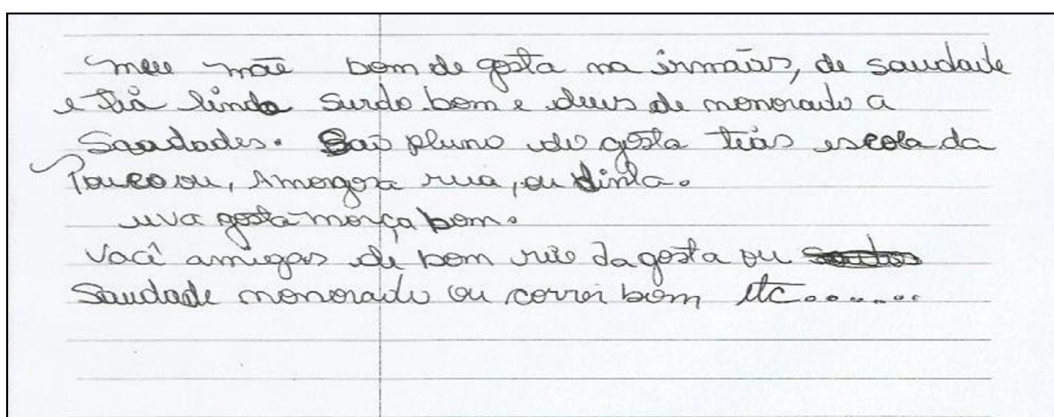 meu mãe bom de gosta na irmãos, de saudade
e tiá linda surdo bom e deus de monorado a
Saudades. Sao pluno do gosta tias escola da
Pouco ou, Amorgosa rua, ou dinla.
uva gosta morça bom.
Você amigas de bom rio da gosta ou
Saudade monorado ou correi bom etc.......